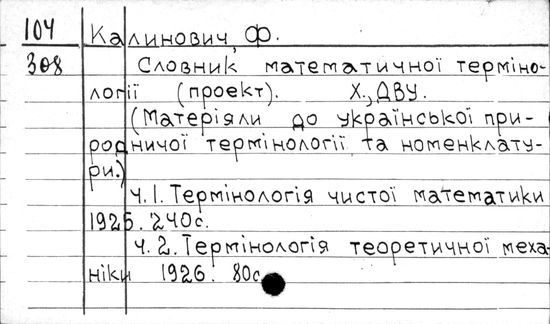 104 Калинович, Ф.
308 Словник математичної терміно-
логії (проект). Х., ДВУ.
(Матеріяли до української при-
родничої термінології та номенклату-
ри.)
ч. 1. Термінологія чистої математики
1925. 240с.
ч. 2. Термінологія теоретичної меха-
ніки 1926. 80с.